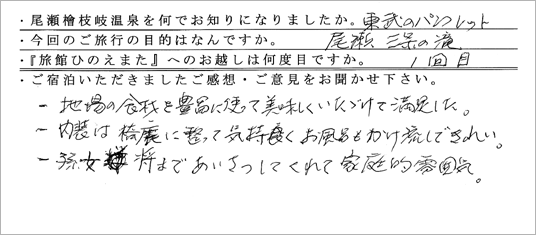 ・尾瀬檜枝岐温泉を何でお知りになりましたか。東武のパンフレット
・今回のご旅行の目的はなんですか。 尾瀬 三条の滝
・『旅館ひのえまた』へのお越しは何度目ですか。 1回目
・ご宿泊いただきましたご感想・ご意見をお聞かせ下さい。
－地場の食材を豊富に使って美味しくいただけて満足した。
－内装は綺麗に整って気持良くお風呂もかけ流しできれい。
－孫女将まであいさつしてくれて家庭的雰囲気。